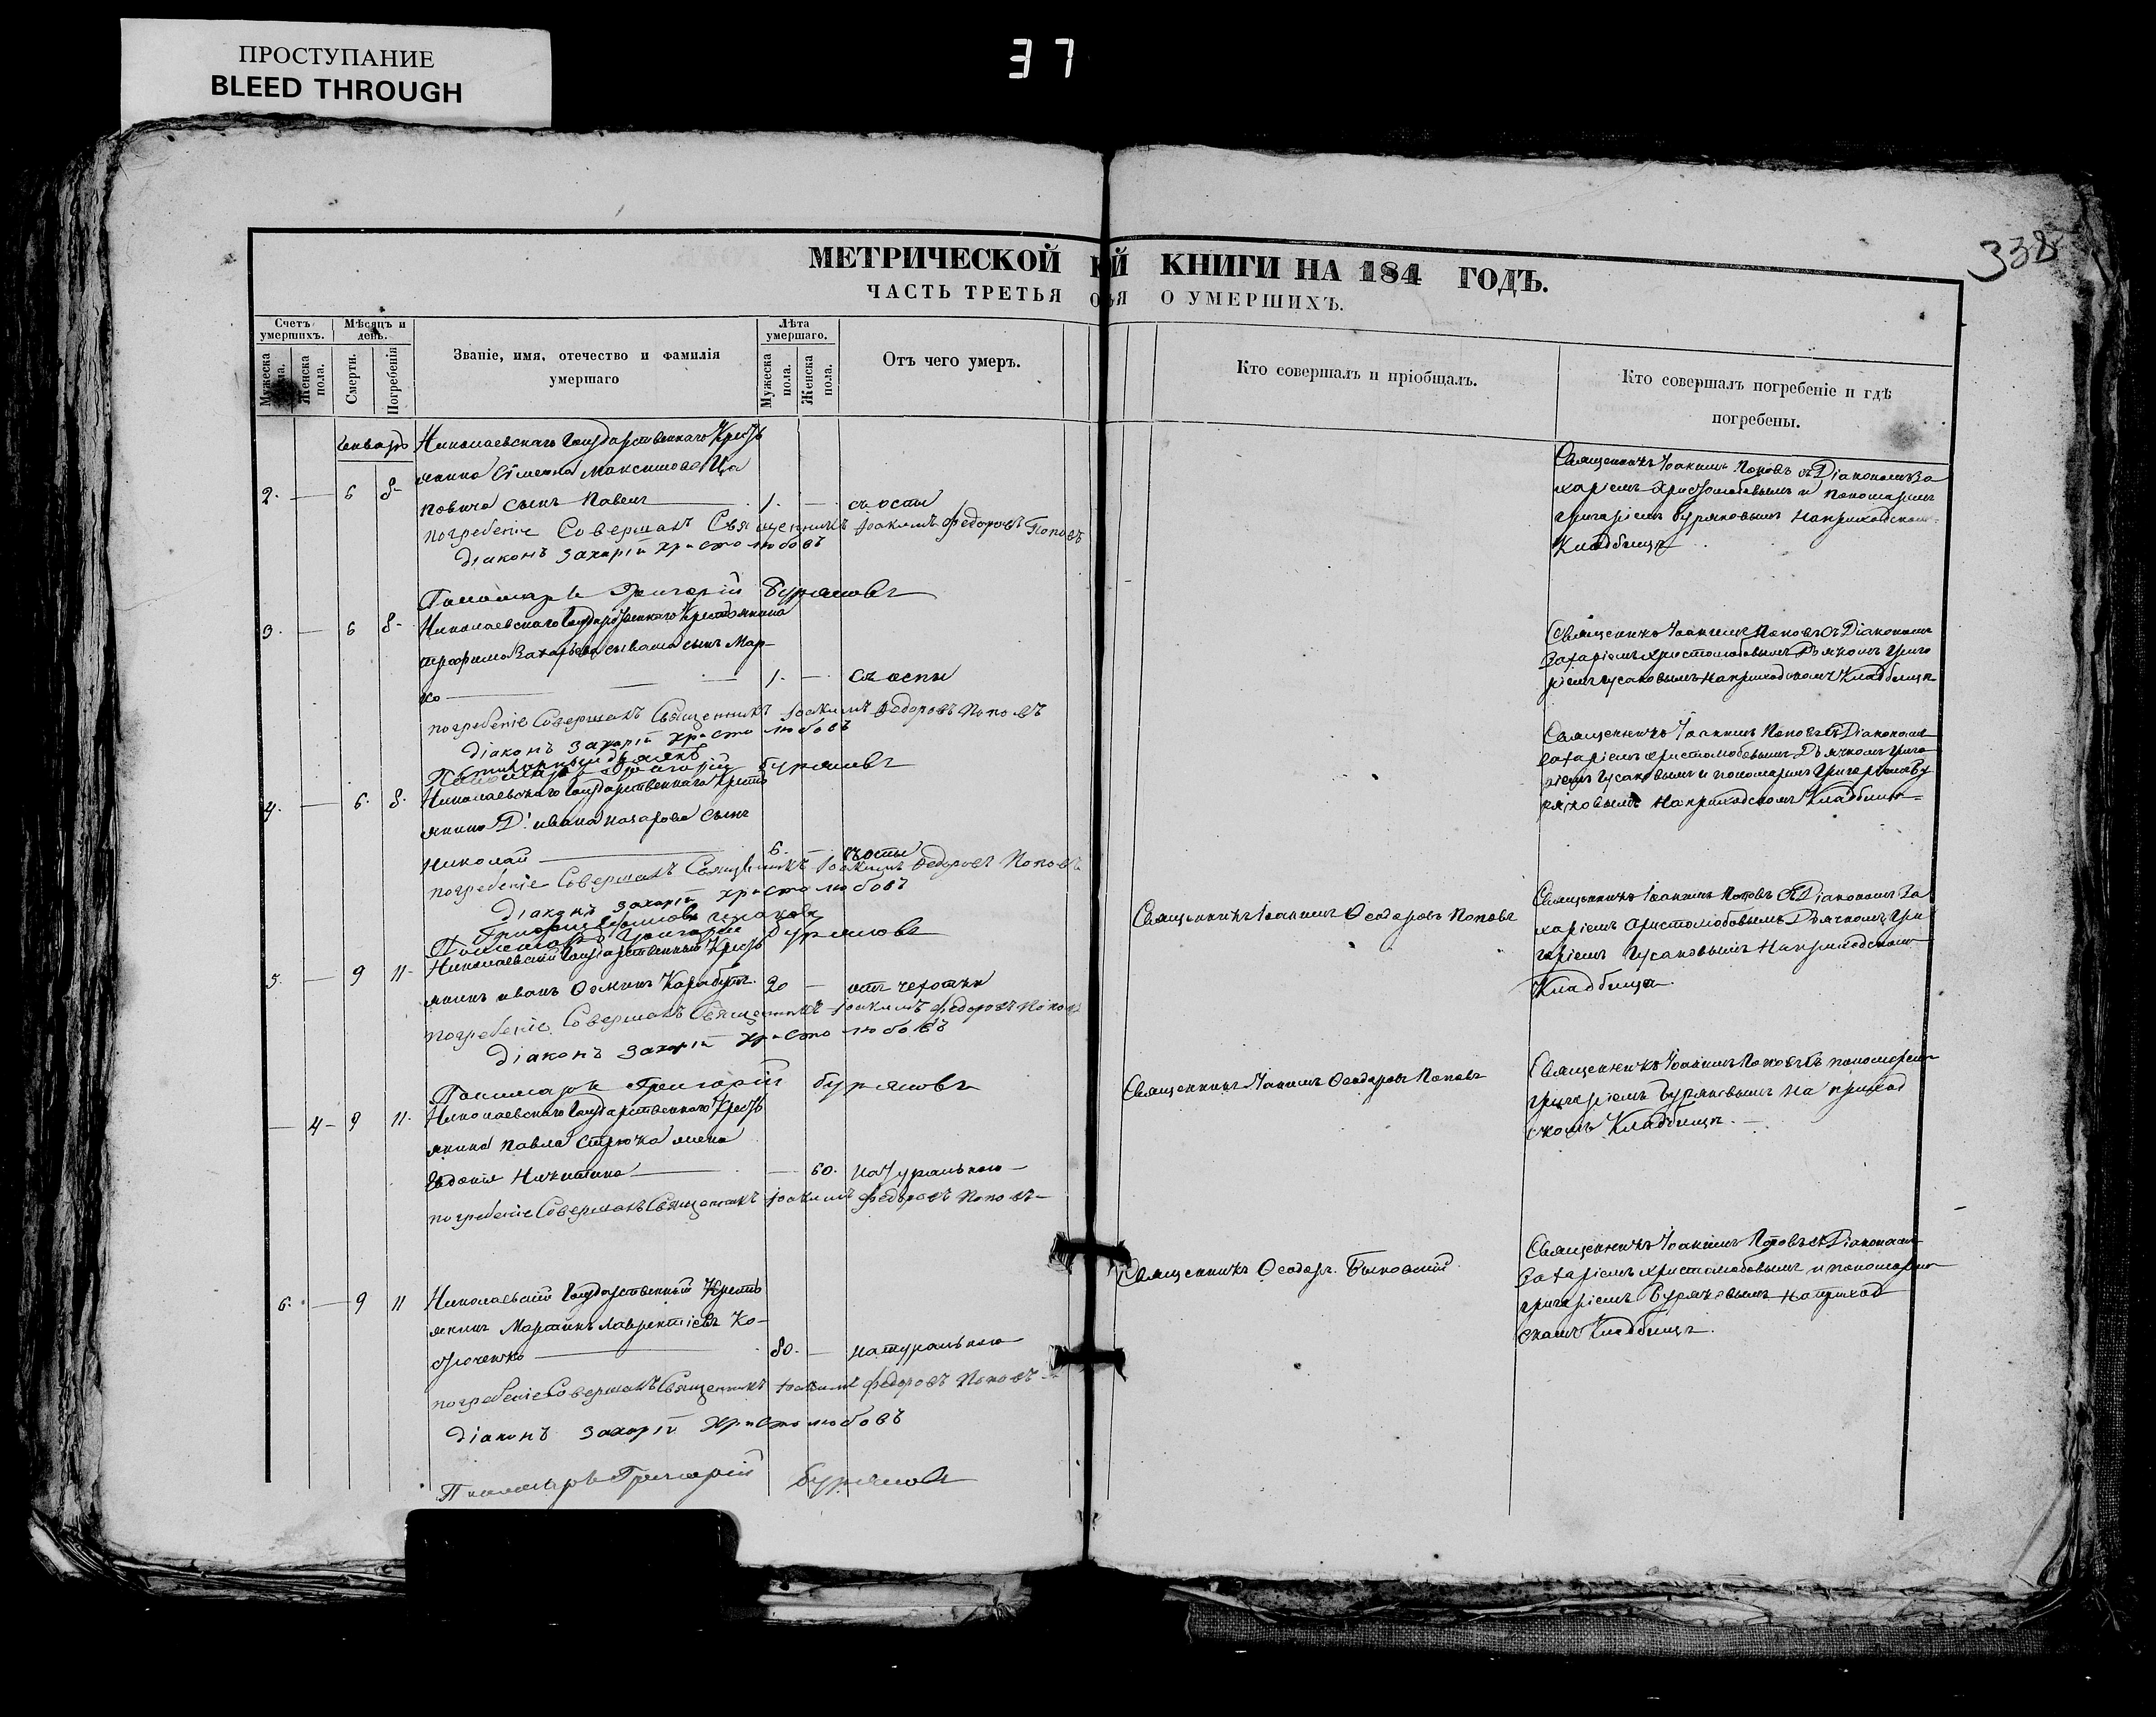 ПРОСТУПАНИЕ
BLEED THROUGH
37
338
МЕТРИЧЕСКОЙ КНИГИ НА 184 ГОДЪ.
ЧАСТЬ ТРЕТЬЯ О УМЕРШИХЪ.
Счетъ умершихъ.
Мѣсяцъ и день.
Званіе, имя, отечество и фамилія умершаго
Лѣта умершаго.
Отъ чего умеръ.
Кто совершалъ и пріобщалъ.
Кто совершалъ погребеніе и гдѣ погребены.
Мужеска пола.
Женска пола.
Смерти.
Погребенія
Мужеска пола.
Женска пола.
Николаевскаго Государственнаго Кресть
янина Максимова
2. — 6 8 сынъ Павелъ — 1. — съ оспы
погребеніе Совершалъ Священникъ Іоакимъ Федоровъ Поповъ
Діаконъ Захарій Христолюбовъ
Пономарь Григорій Буряковъ
Священникъ Іоакимъ Поповъ съ Діакономъ За
харіемъ Христолюбовымъ и пономаремъ
Григоріемъ Буряковымъ на приходскомъ
Кладбищѣ
3. — 6 8 Николаевскаго Государственнаго Крестьянина
Трофима Захарьева сынъ Мар-
ко — 1. — съ оспы
погребеніе Совершалъ Священникъ Іоакимъ Федоровъ Поповъ
Діаконъ Захарій Христолюбовъ
Пономарь Григорій Буряковъ
Священникъ Іоакимъ Поповъ съ Діакономъ
Захаріемъ Христолюбовымъ Дьячкомъ Григо
ріемъ Гусаковымъ на приходскомъ Кладбищѣ
4. — 6. 8. Николаевскаго Государственнаго Кресть
янина Ивана Назарова сынъ
Николай — 6. — съ оспы
погребеніе Совершалъ Священникъ Іоакимъ Федоровъ Поповъ
Діаконъ Захарій Христолюбовъ
Пономарь Григорій Буряковъ
Священникъ Іоакимъ Поповъ съ Діакономъ
Захаріемъ Христолюбовымъ Дьячкомъ Григо
ріемъ Гусаковымъ и пономаремъ Григоріемъ Бу
ряковымъ на приходскомъ Кладбищѣ
5. — 9 11 Николаевскій Государственный Кресть
янинъ Иванъ 20 — отъ чахотки
погребеніе Совершалъ Священникъ Іоакимъ Федоровъ Поповъ
Діаконъ Захарій Христолюбовъ
Пономарь Григорій Буряковъ
Священникъ Іоакимъ Феодоровъ Поповъ
Священникъ Іоакимъ Поповъ съ Діакономъ За
харіемъ Христолюбовымъ Дьячкомъ Гри
горіемъ Гусаковымъ на приходскомъ
Кладбищѣ.
— 4 — 9 11. Николаевскаго Государственнаго Кресть
янина Павла жена
Евдокія — 60. натурально
погребеніе Совершалъ Священникъ Іоакимъ Федоровъ Поповъ
Священникъ Іоакимъ Феодоровъ Поповъ
Священникъ Іоакимъ Поповъ съ пономаремъ
Григоріемъ Буряковымъ на приход
скомъ Кладбищѣ.
6. — 9 11 Николаевскій Государственный Кресть
янинъ Мартинъ Лаврентіевъ Ко-
80. — натурально
погребеніе Совершалъ Священникъ Іоакимъ Федоровъ Поповъ
Діаконъ Захарій Христолюбовъ
Пономарь Григорій Буряковъ
Священникъ Феодоръ
Священникъ Іоакимъ Поповъ съ Діакономъ
Захаріемъ Христолюбовымъ и пономаремъ
Григоріемъ Буряковымъ на приход
скомъ Кладбищѣ.